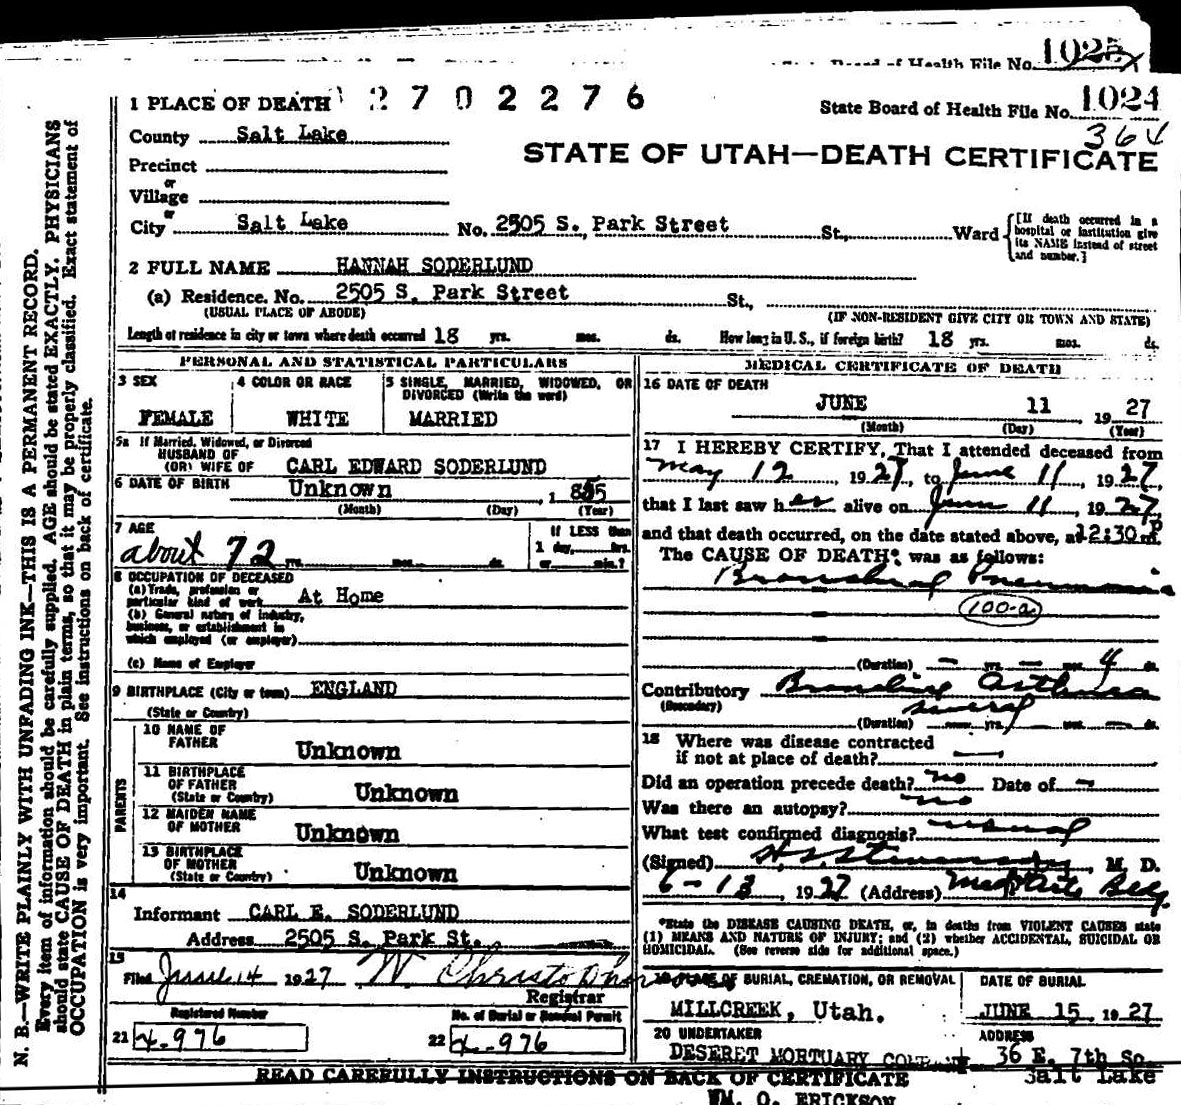 1025
State Board of Health File No. 1024
364
1 PLACE OF DEATH 2702276
County Salt Lake
STATE OF UTAH—DEATH CERTIFICATE
Precinct
or
Village
or
City Salt Lake No. 2505 S. Park Street St., Ward
[If death occurred in a hospital or institution give its NAME instead of street and number.]
2 FULL NAME HANNAH SODERLUND
(a) Residence. No. 2505 S. Park Street St.,
(USUAL PLACE OF ABODE) (IF NON-RESIDENT GIVE CITY OR TOWN AND STATE)
Length of residence in city or town where death occurred 18 yrs. mos. ds. How long in U. S., if foreign birth? 18 yrs. mos. ds.
PERSONAL AND STATISTICAL PARTICULARS
3 SEX
FEMALE
4 COLOR OR RACE
WHITE
5 SINGLE, MARRIED, WIDOWED, OR DIVORCED (Write the word)
MARRIED
5a If Married, Widowed, or Divorced
HUSBAND OF
(OR) WIFE OF CARL EDWARD SODERLUND
6 DATE OF BIRTH Unknown , 1855
(Month) (Day) (Year)
7 AGE
about 72 yrs. mos. ds.
If LESS than
1 day, hrs.
or min.?
8 OCCUPATION OF DECEASED
(a) Trade, profession or
particular kind of work At Home
(b) General nature of industry,
business, or establishment in
which employed (or employer)
(c) Name of Employer
9 BIRTHPLACE (City or town) ENGLAND
(State or Country)
PARENTS
10 NAME OF
FATHER Unknown
11 BIRTHPLACE
OF FATHER Unknown
(State or Country)
12 MAIDEN NAME
OF MOTHER Unknown
13 BIRTHPLACE
OF MOTHER Unknown
(State or Country)
14
Informant CARL E. SODERLUND
Address 2505 S. Park St.,
15
Filed June 14 1927
Registrar
Registered Number
21 X-976
No. of Burial or Removal Permit
22 X-976
MEDICAL CERTIFICATE OF DEATH
16 DATE OF DEATH
JUNE 11 1927
(Month) (Day) (Year)
17 I HEREBY CERTIFY, That I attended deceased from
May 12 1927, to June 11, 1927,
that I last saw her alive on June 11, 1927,
and that death occurred, on the date stated above, at 12:30 P m.
The CAUSE OF DEATH* was as follows:
Bronchial Pneumonia
100-a
(Duration) — yrs. — mos. 4 ds.
Contributory Bronchial Asthma
(Secondary) several
(Duration) yrs. mos. — ds.
18 Where was disease contracted
if not at place of death? —
Did an operation precede death? no Date of —
Was there an autopsy? no
What test confirmed diagnosis? usual
(Signed) , M. D.
6-13, 1927 (Address)
*State the DISEASE CAUSING DEATH, or, in deaths from VIOLENT CAUSES state
(1) MEANS AND NATURE OF INJURY; and (2) whether ACCIDENTAL, SUICIDAL OR
HOMICIDAL. (See reverse side for additional space.)
19 PLACE OF BURIAL, CREMATION, OR REMOVAL
MILLCREEK, Utah.
DATE OF BURIAL
JUNE 15 1927
20 UNDERTAKER
DESERET MORTUARY COMPANY
ADDRESS
36 E. 7th So.
Salt Lake
READ CAREFULLY INSTRUCTIONS ON BACK OF CERTIFICATE
WM. O. ERICKSON
N. B.—WRITE PLAINLY WITH UNFADING INK—THIS IS A PERMANENT RECORD.
Every item of information should be carefully supplied. AGE should be stated EXACTLY. PHYSICIANS
should state CAUSE OF DEATH in plain terms, so that it may be properly classified. Exact statement of
OCCUPATION is very important. See instructions on back of certificate.